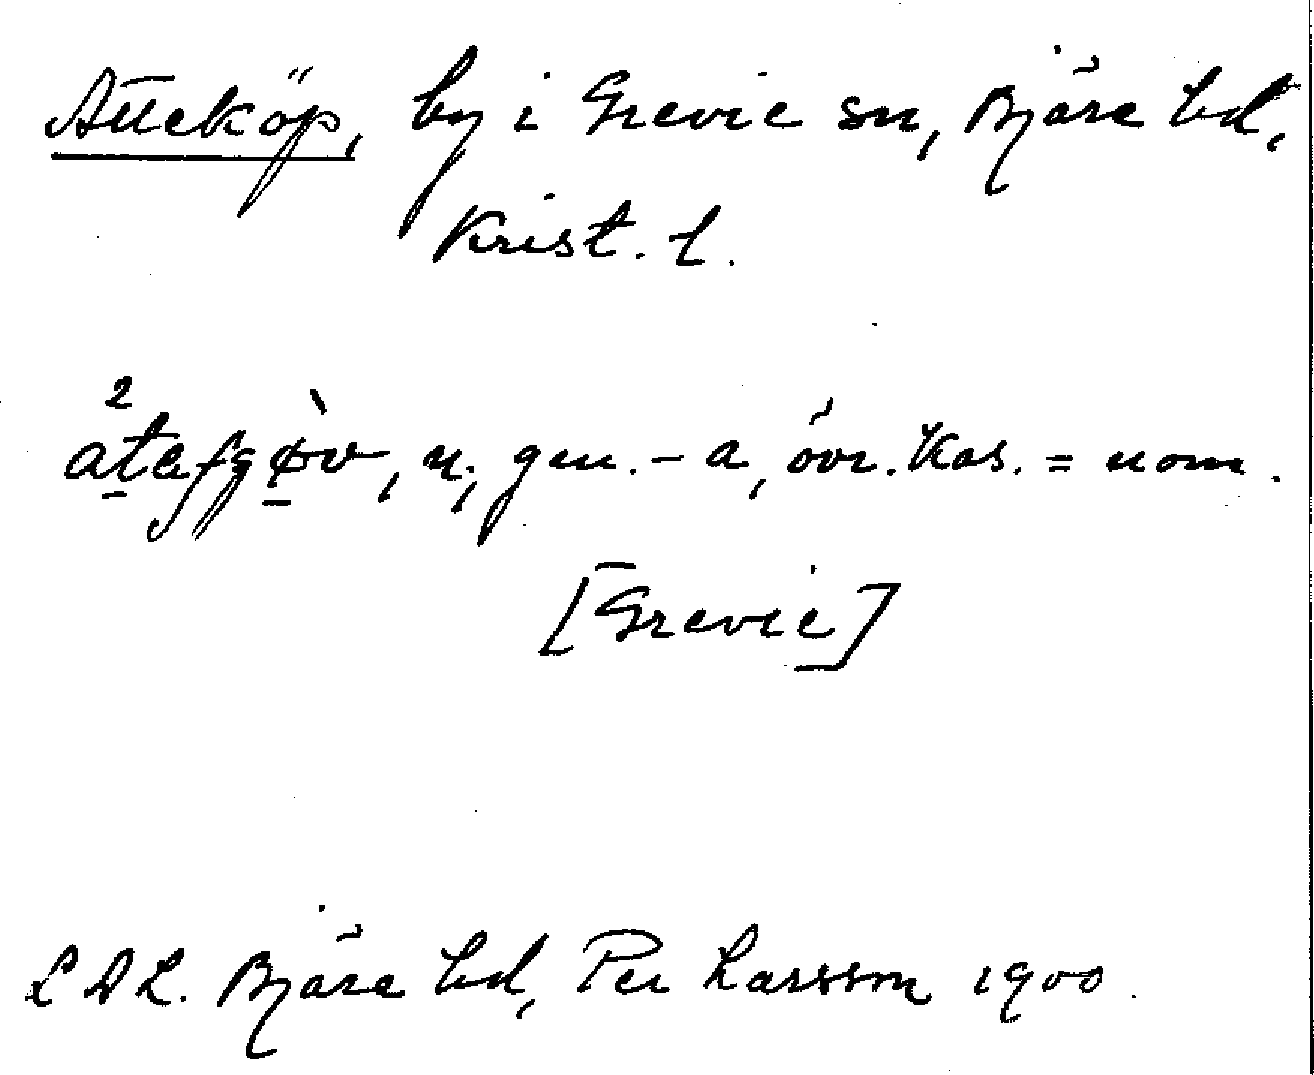 Atteköp, by i Grevie sn, Bjäre hd,
Krist. l.
n; gen. -a, övr. kas. = nom.
[Grevie]
LDL. Bjäre hd, Per Larsson 1900.